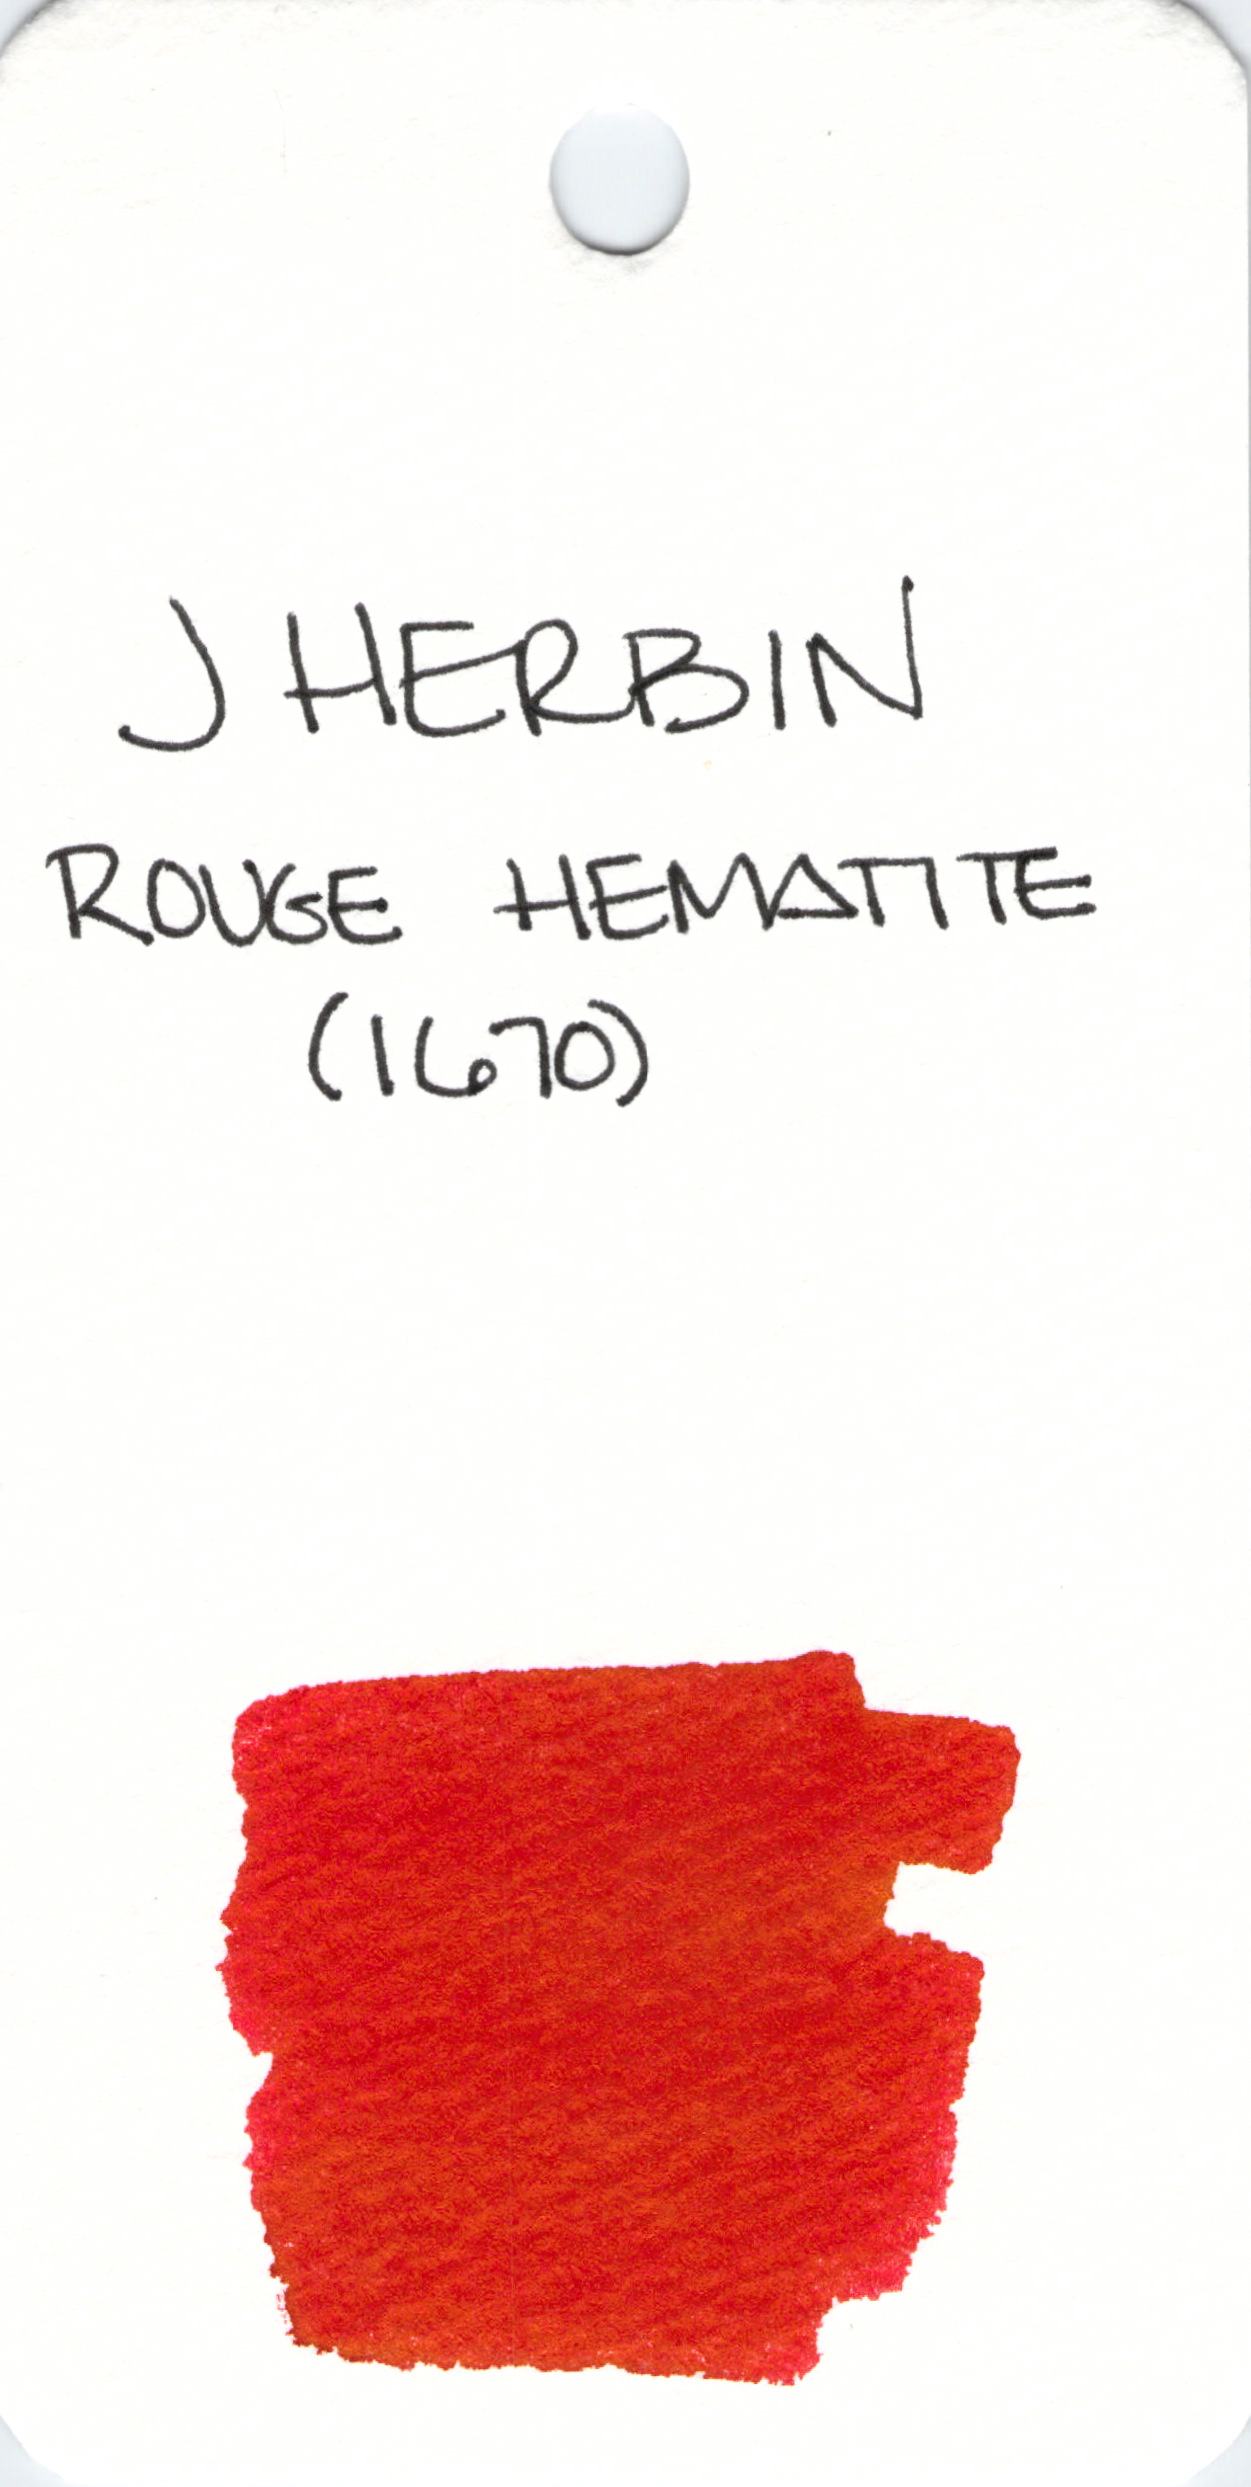 J HERBIN
ROUGE HEMATITE
(1670)